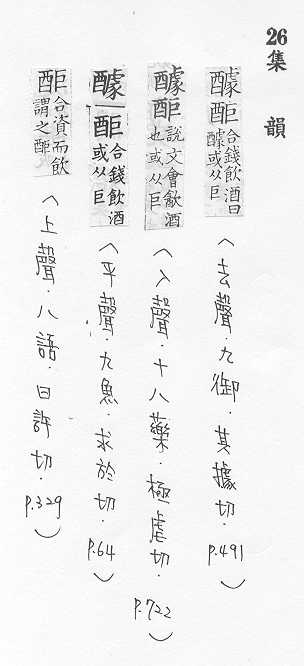 26 集韻
醵䣧 合錢飲酒曰醵或从巨 (去聲.九御.其據切.P.491)
醵䣧 說文會歙酒也或从巨 (入聲.十八藥.極虐切.P.722)
醵䣧 合錢飲酒或从巨 (平聲.九魚.求於切.P.64)
䣧 合資而飲謂之䣧 (上聲.八語.臼許切.P.329)